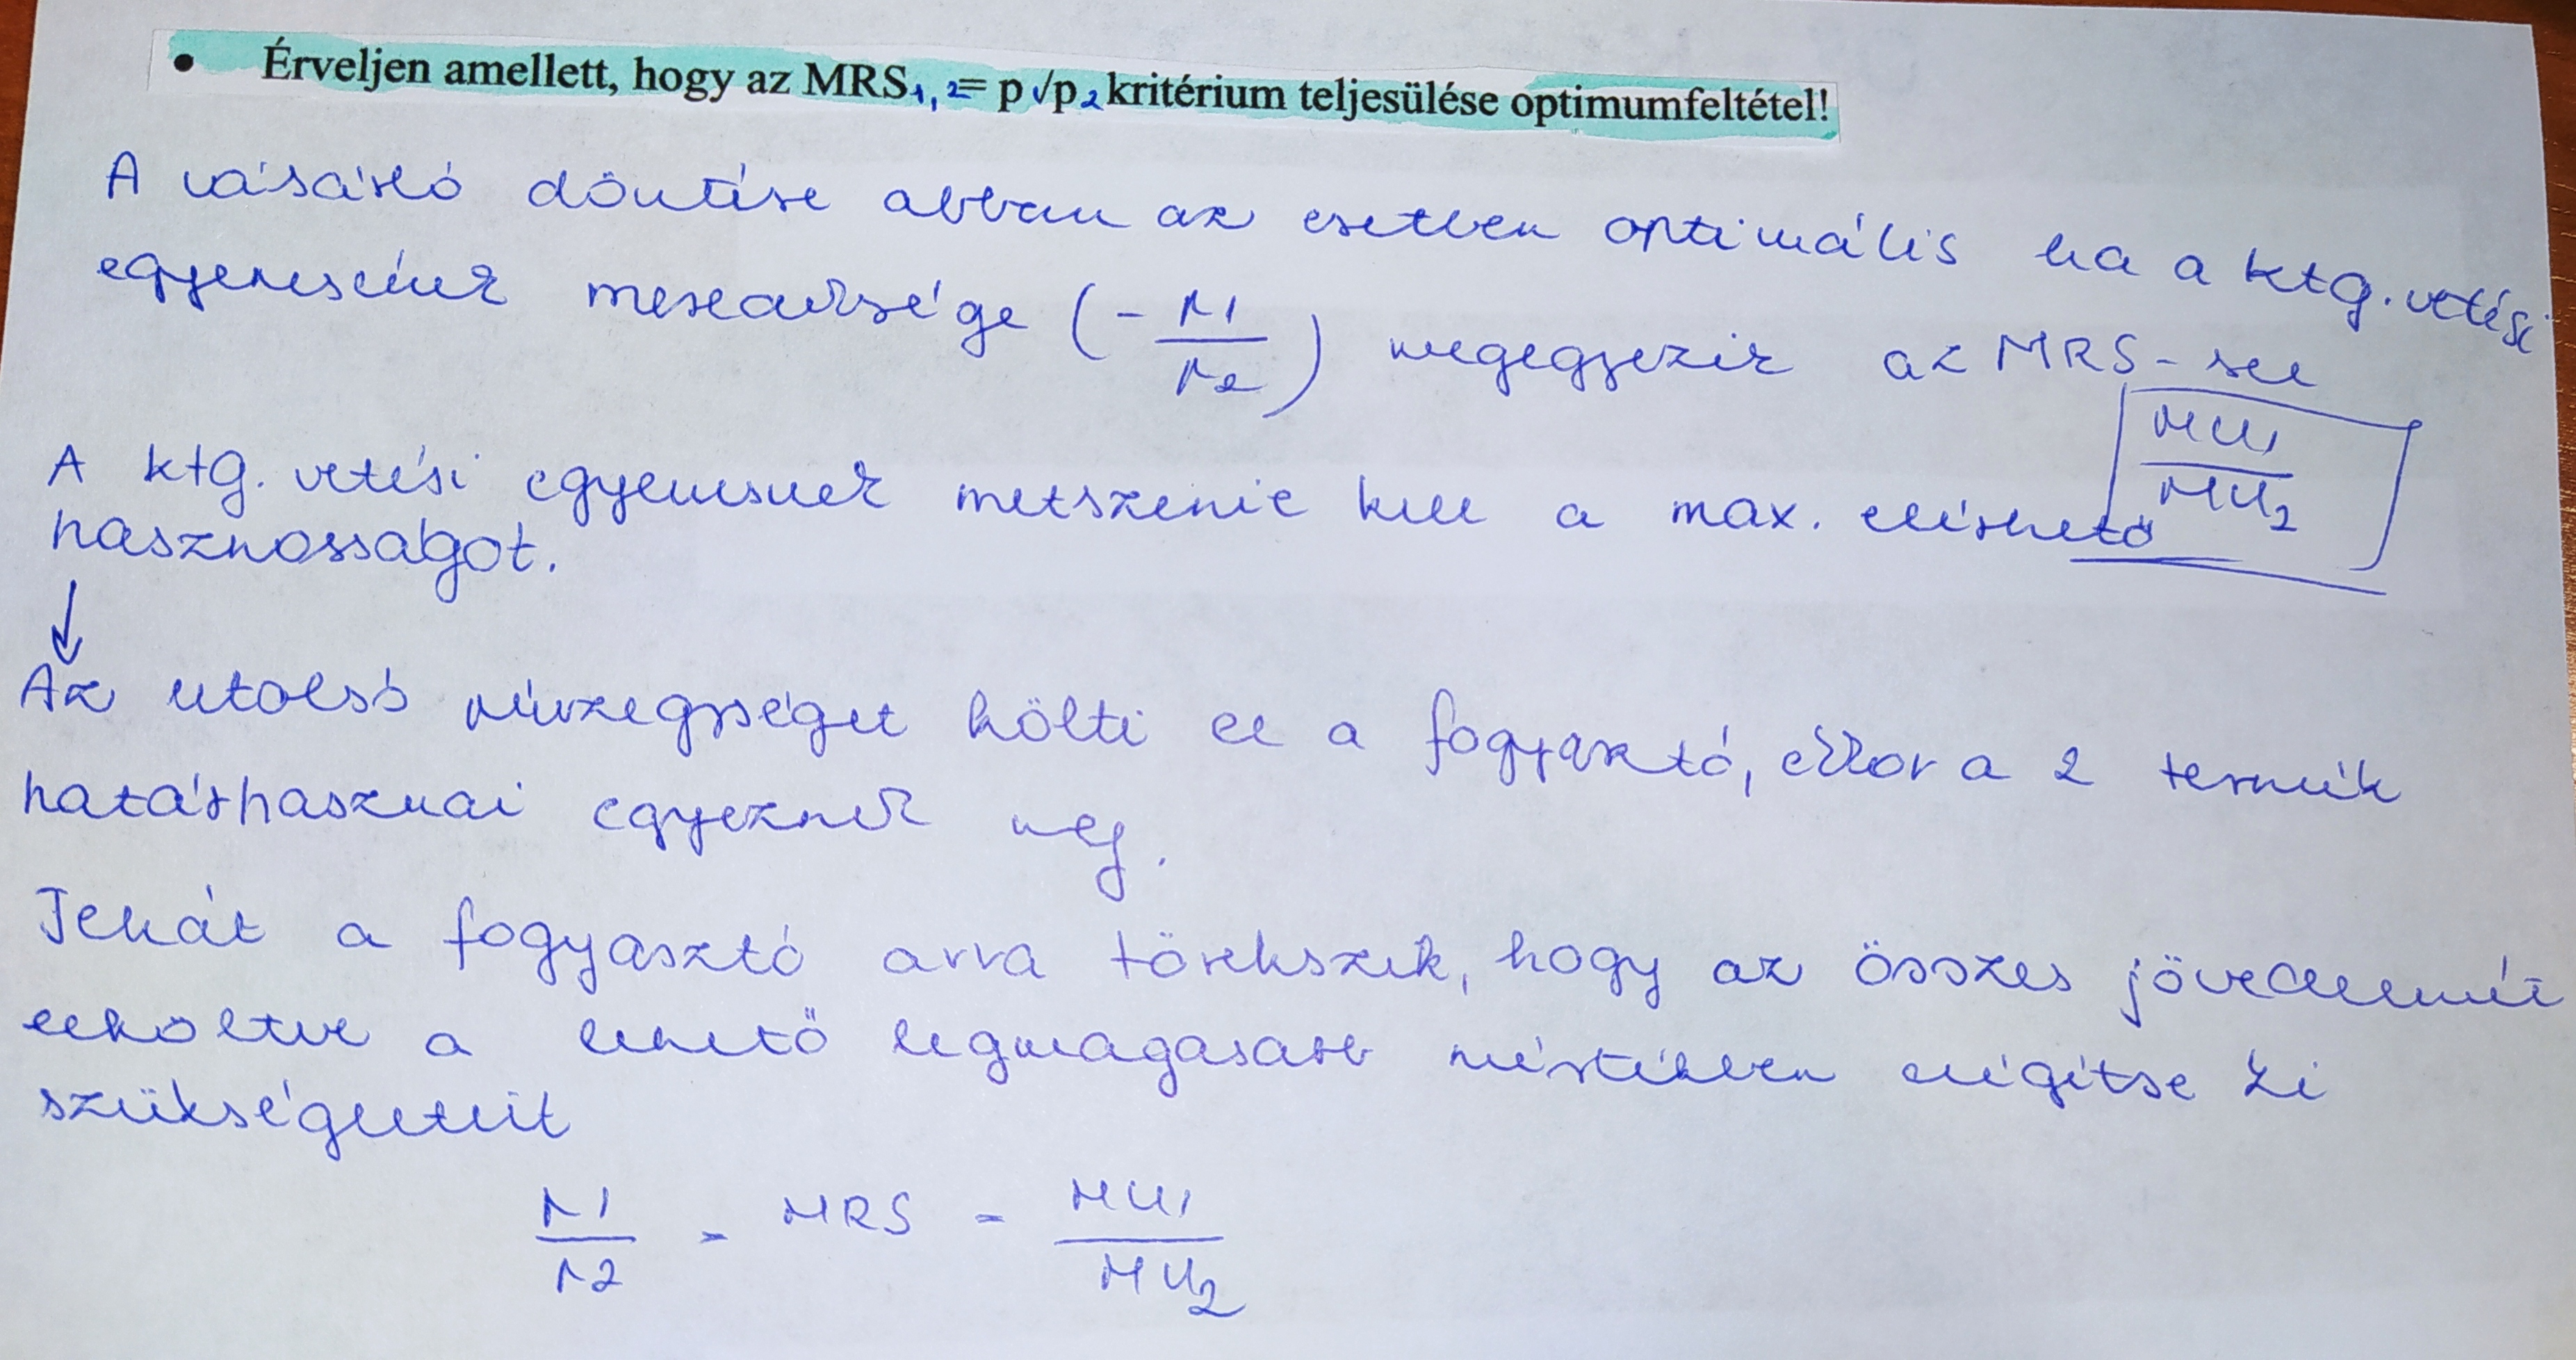 • Érveljen amellett, hogy az MRS1,2 = p1/p2 kritérium teljesülése optimumfeltétel!
A vásárló döntése abban az esetben optimális ha a ktg. vetési
egyenesének meredeksége (- p1/p2) megegyezik az MRS-sel
MU1/MU2
A ktg. vetési egyenesnek metszenie kell a max. elérhető
hasznosságot.
↓
Az utolsó pénzegységet költi el a fogyasztó, ekkor a 2 termék
határhasznai egyeznek meg.
Tehát a fogyasztó arra törekszik, hogy az összes jövedelmét
elköltve a lehető legmagasabb mértékben elégítse ki
szükségleteit
p1/p2 = MRS = MU1/MU2